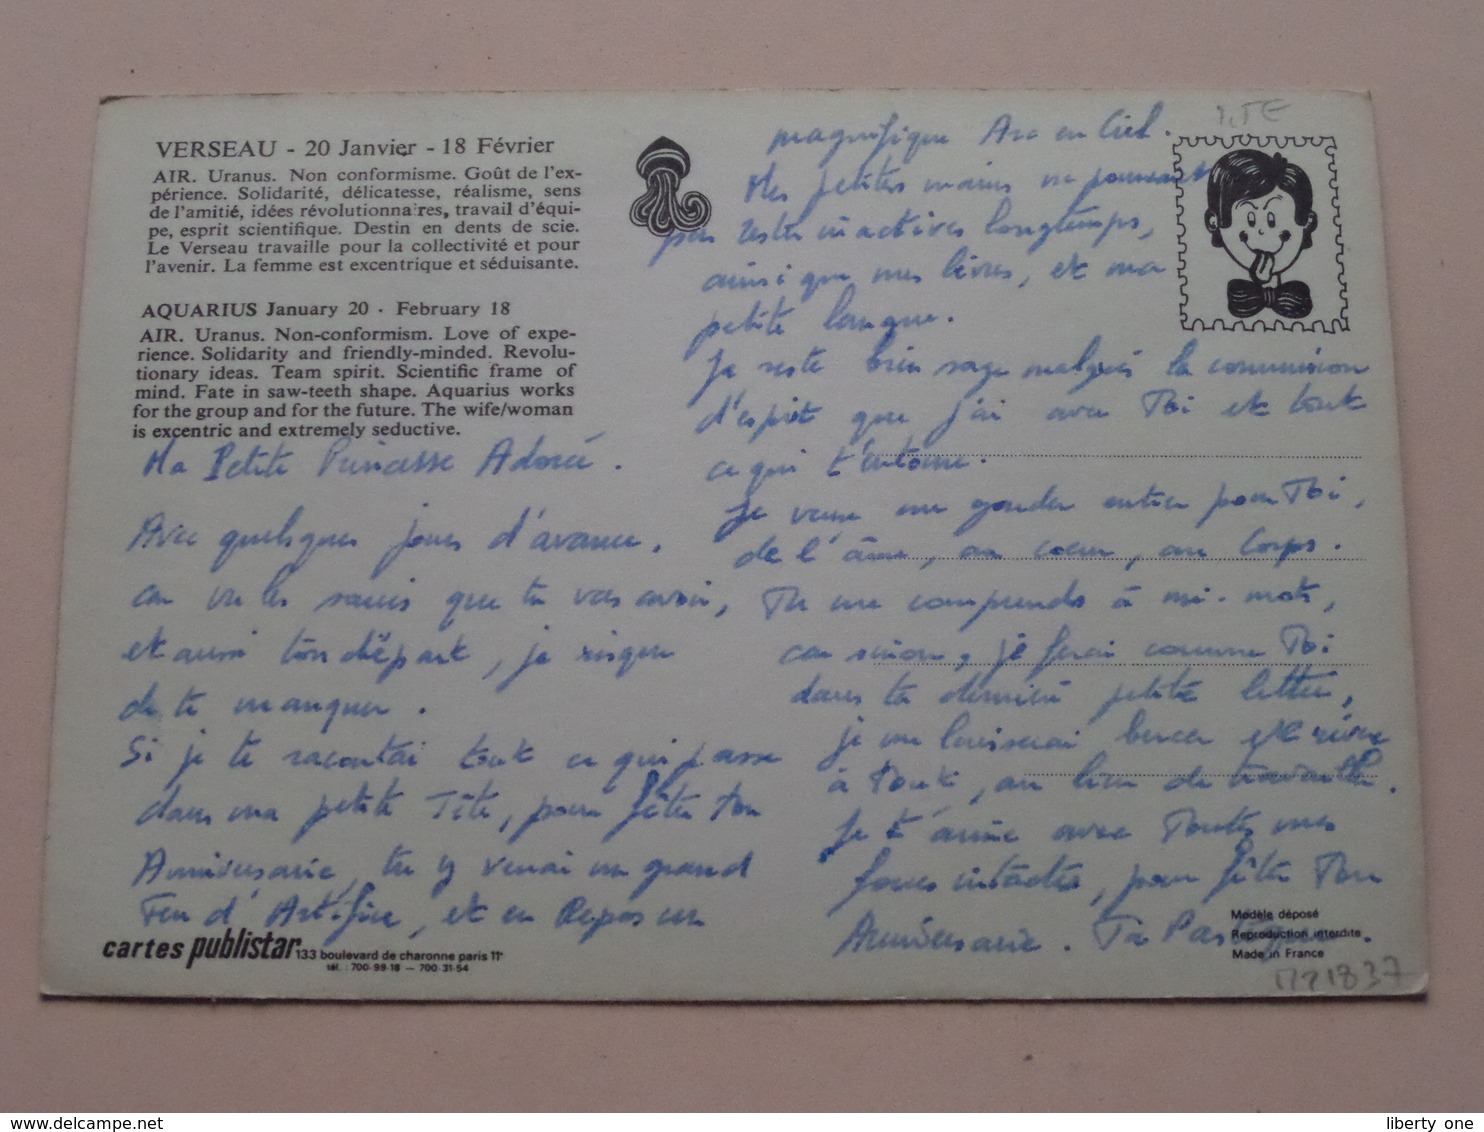 VERSEAU - 20 Janvier - 18 Février
AIR. Uranus. Non conformisme. Goût de l'ex-
périence. Solidarité, délicatesse, réalisme, sens
de l'amitié, idées révolutionnaires, travail d'équi-
pe, esprit scientifique. Destin en dents de scie.
Le Verseau travaille pour la collectivité et pour
l'avenir. La femme est excentrique et séduisante.
AQUARIUS January 20 - February 18
AIR. Uranus. Non-conformism. Love of expe-
rience. Solidarity and friendly-minded. Revolu-
tionary ideas. Team spirit. Scientific frame of
mind. Fate in saw-teeth shape. Aquarius works
for the group and for the future. The wife/woman
is excentric and extremely seductive.
Ma Petite Princesse Adorée.
Avec quelques jours d'avance,
car vu les soucis que tu vas avoir,
et aussi ton départ, je risque
de te manquer.
Si je te racontai tout ce qui passe
dans ma petite Tête, pour fêter ton
Anniversaire, tu y verrai un grand
Feu d'Artifice, et en Repos un
magnifique Arc en Ciel.
Mes petites mains ne pourraient
pas rester inactives longtemps,
ainsi que mes lèvres, et ma
petite langue.
Je reste bien sage malgrés la communion
d'esprit que j'ai avec Toi et tout
ce qui t'entoure.
Je veux me garder entier pour Toi,
de l'âme, au coeur, au Corps.
Tu me comprends à mi-mots,
car sinon, je ferai comme Toi
dans ta dernière petite lettre,
je me laisserai bercer et rêver
à Tout, au lieu de travailler.
Je t'aime avec Toutes mes
forces intactes, pour fêter Ton
Anniversaire. Ta
cartes publistar 133 boulevard de charonne paris 11e
tél. : 700-99-18 — 700-31-54
Modèle déposé
Reproduction interdite
Made in France
M21837
liberty one